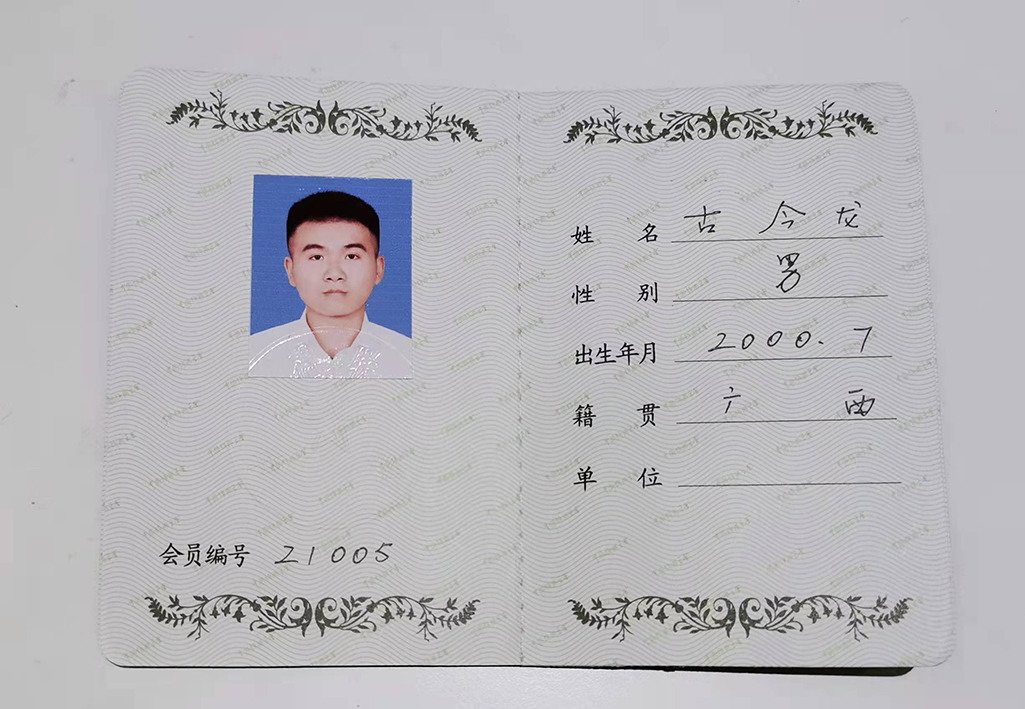 会员编号 21005
姓名 古今龙
性别 男
出生年月 2000.7
籍贯 广西
单位